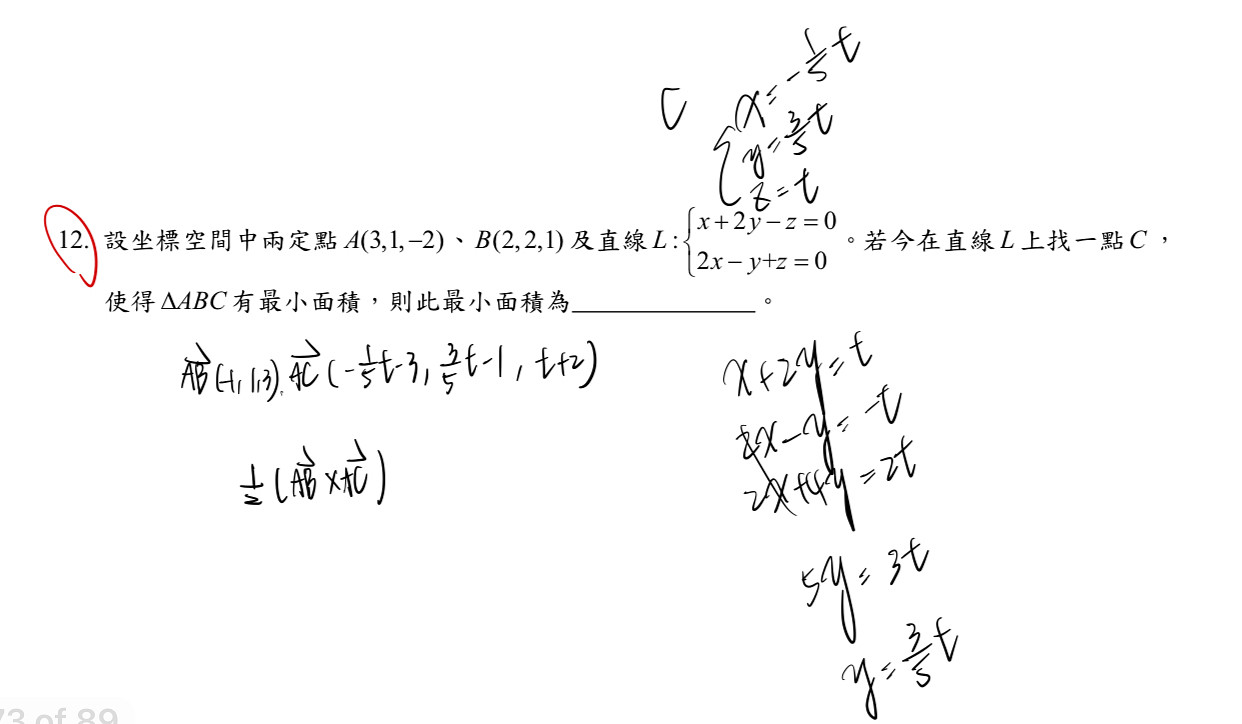 C
x = -1/5 t
y = 3/5 t
z = t
12. 設坐標空間中兩定點 A(3,1,−2)、B(2,2,1) 及直線 L:{x+2y−z=0
2x−y+z=0 。若今在直線 L 上找一點 C，
使得 ΔABC 有最小面積，則此最小面積為____________。
AB(-1,1,3), AC(-1/5 t-3, 3/5 t-1, t+2)
1/2 (AB×AC)
x+2y=t
2x-y=-t
2x+4y=2t
5y=3t
y=3/5 t
73 of 89